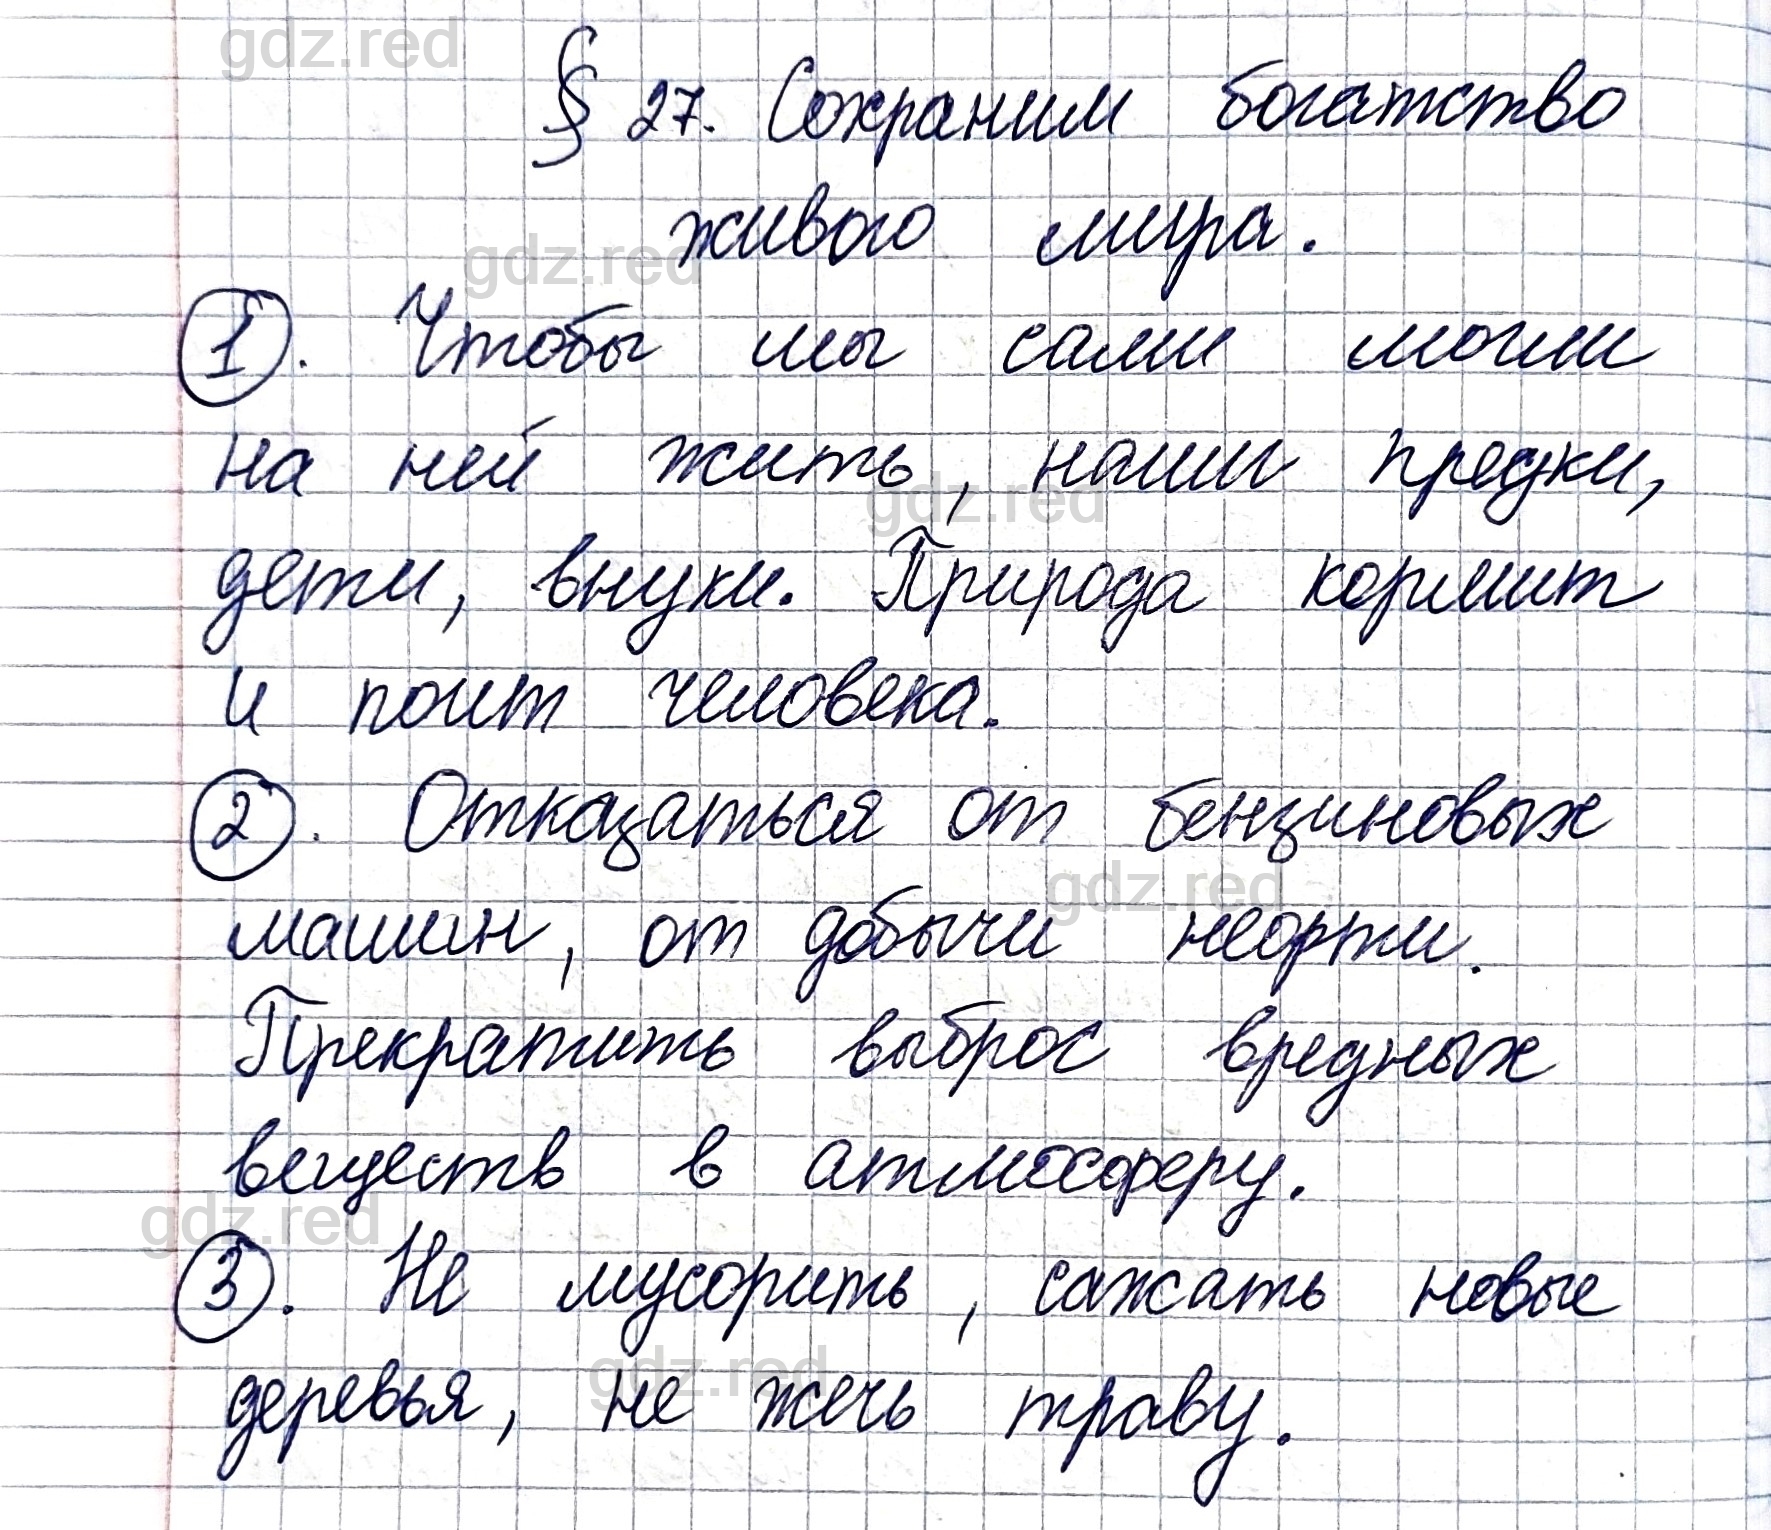 § 27. Сохраним богатство
живого мира.
1. Чтобы мы сами могли
на ней жить, наши предки,
дети, внуки. Природа кормит
и поит человека.
2. Отказаться от бензиновых
машин, от добычи нефти.
Прекратить выброс вредных
веществ в атмосферу.
3. Не мусорить, сажать новые
деревья, не жечь траву.
gdz.red
gdz.red
gdz.red
gdz.red
gdz.red
gdz.red